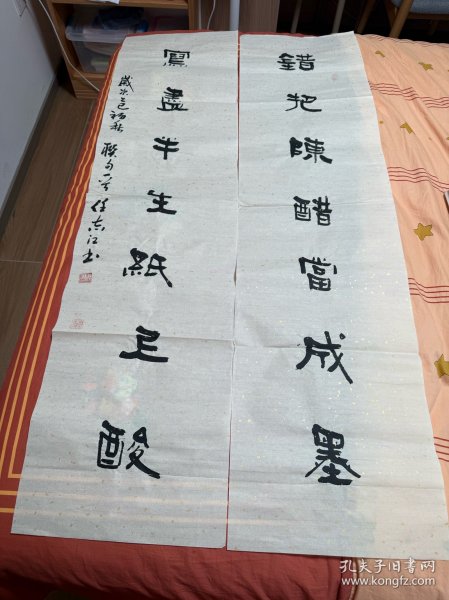 錯把陳醋當成墨
寫盡半生紙上酸
歲次乙巳初秋 聯句一 任志江书
孔夫子旧书网
www.kongfz.com